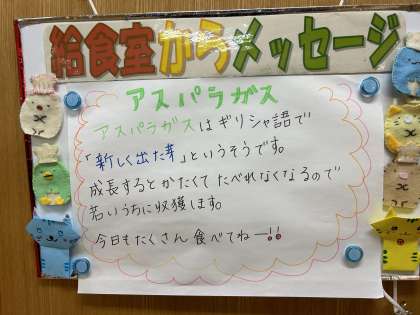 給食室からメッセージ
アスパラガス
アスパラガスはギリシャ語で
「新しく出た芽」というそうです。
成長するとかたくて たべれなくなるので
若いうちに収獲します。
今日もたくさん食べてねー!!